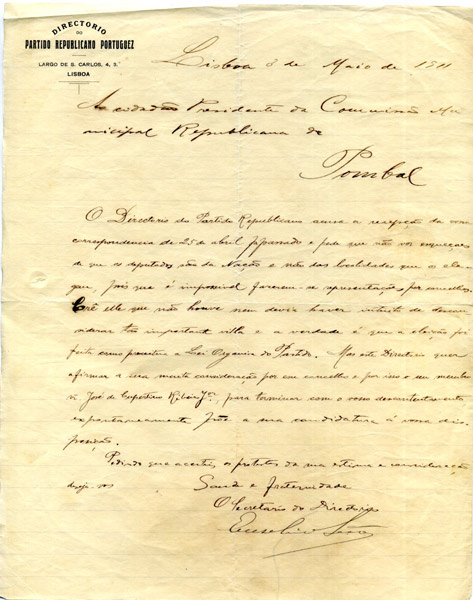 DIRECTORIO
DO
PARTIDO REPUBLICANO PORTUGUEZ
LARGO DE S. CARLOS, 4, 2.º
LISBOA
Lisboa 3 de Maio de 1911
Ao cidadão Presidente da Commissão Mu
nicipal Republicana de
Pombal
O Directorio do Partido Republicano accusa a recepção da vossa
correspondencia de 25 de abril p. passado e pede que não vos esqueçaes
de que os deputados são da Nação e não das localidades que os ele-
gue, pois que é impossivel fazerem-se representações por concelhos.
Crê elle que não houve nem devia haver intuito de descon
siderar tão important villa e a verdade é que a eleição foi
feita como preceitua a Lei Organica do Partido. Mas este Directorio quer
afirmar a sua muita consideração por esse concelho e por isso o seu membro
José de Cupertino Ribeiro Jºr, para terminar com o vosso descontentamento
expontaneamente a sua candidatura á vossa dis
posição.
Pedindo que acceiteis os protestos da sua estima e consideração
deseja-vos Saude e fraternidade
O Secretario do Directorio
Eusebio Leão